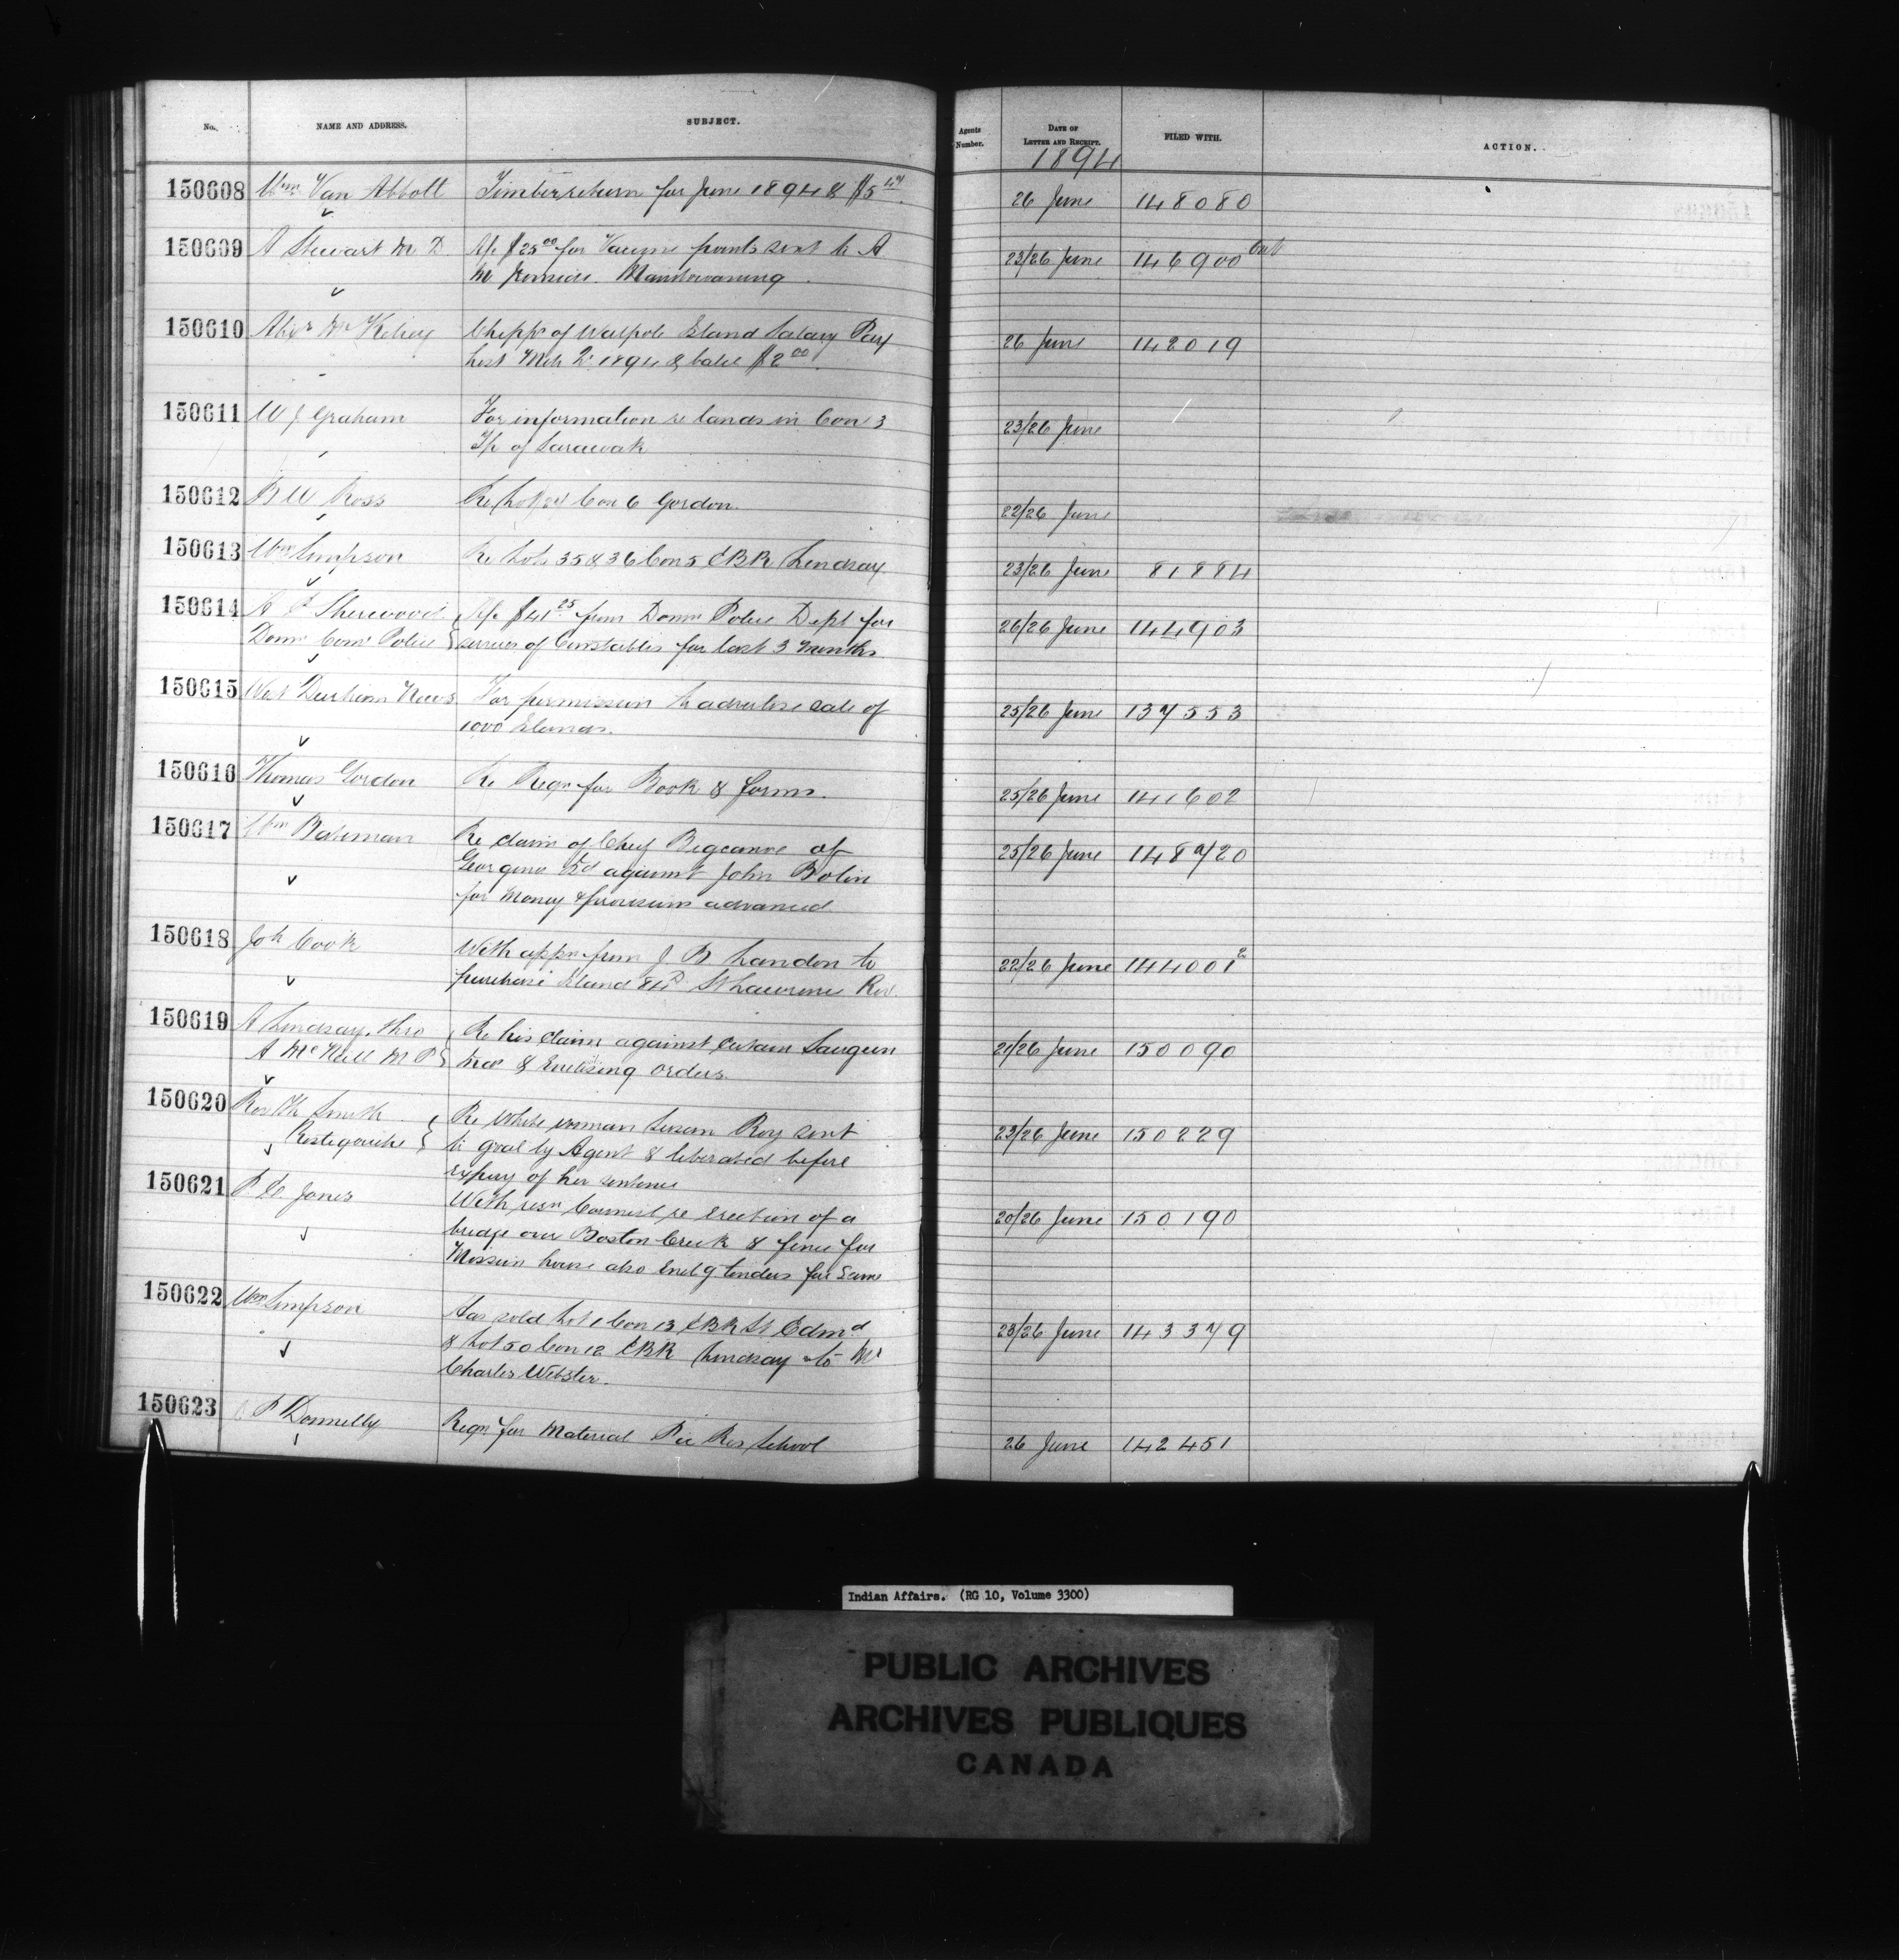 No. NAME AND ADDRESS. SUBJECT. Agents Number. DATE OF LETTER AND RECEIPT. FILED WITH. ACTION.
1894
150608 Wm Van Abbott Timber return for June 1894 & $5 26 June 148080
150609 A Stewart M D A/c $25 00 for Vaccine points sent to A 23/26 June 146900
M Manitowaning
150610 Alex McKelvey Chipps of Walpole Island Salary Pay 26 June 142019
List 1894 & $2 00
150611 W J Graham For information re lands in Con 3 23/26 June
T/p of Sarawak
150612 B W Ross Re Lot 24 Con 6 Gordon. 22/26 June
150613 Wm Simpson Re Lots 35 & 36 Con 5 EBR Lindsay 23/26 June 81884
150614 A P Sherwood A/c $41 25 from Domn Police Dept for 26/26 June 144903
Domn Comr Police services of Constables for last 3 months
150615 West Durham News For permission to advertise sale of 25/26 June 137553
1000 Islands.
150616 Thomas Gordon Re Reqn for Book & forms. 25/26 June 141602
150617 Wm Bateman Re claim of Chief Bigcanoe of 25/26 June 148720
Georgina Id against John Bolin
for Money & provisions advanced
150618 Joh Cook With appn from J B Landon to 22/26 June 144001 2
purchase Island 84 St Lawrence Riv.
150619 A Lindsay, thro Re his claim against certain Saugeen 21/26 June 150090
A McNeill M P Inds & Enclosing orders.
150620 Rev Th Smith Re White woman Susan Roy sent 23/26 June 150229
Restigouche to goal by Agent & liberated before
expiry of her sentence
150621 P E Jones With resn Council re Erection of a 20/26 June 150190
bridge over Boston Creek & fence for
Mission house also Enclg tenders for same
150622 Wm Simpson Has sold Lot 1 Con 13 EBR St Edmd 23/26 June 143379
& Lot 50 Con 12 EBR Lindsay to Mr
Charles Webster.
150623 P Donnelly Reqn for Material Pic Res School 26 June 142451
Indian Affairs. (RG 10, Volume 3300)
PUBLIC ARCHIVES
ARCHIVES PUBLIQUES
CANADA